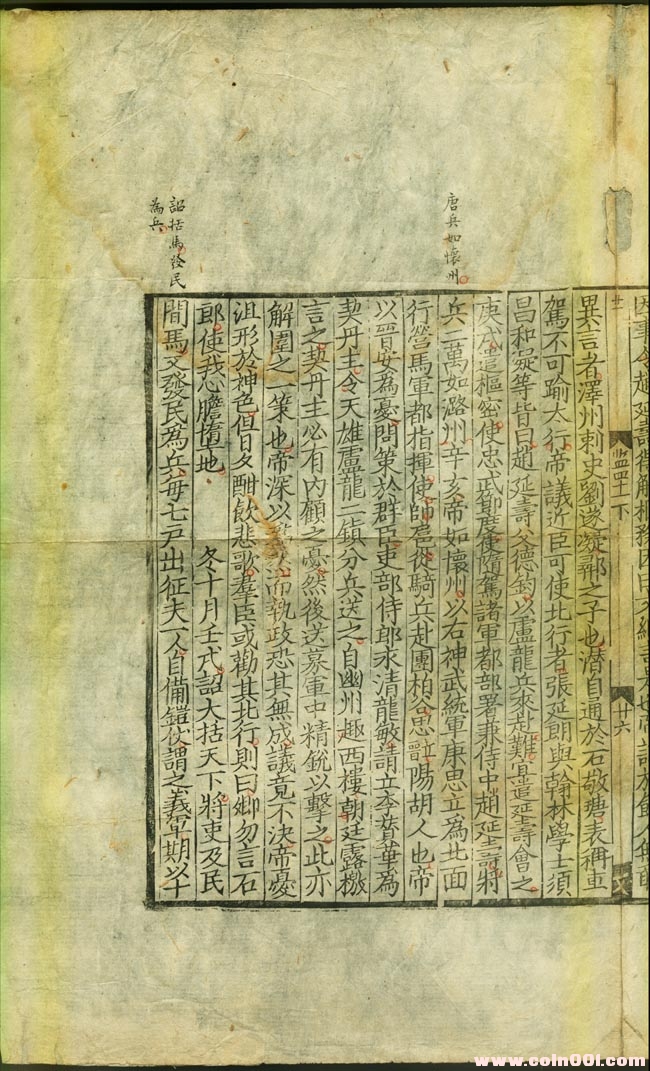 因事令趙延壽得解樞務因曰文紀言是也帝訪於餘人無
監四十一下
廿六
異言者澤州刺史劉遂凝鄩之子也潛自通於石敬瑭表稱車
駕不可踰太行帝議近臣可使北行者張延朗與翰林學士須
昌和凝等皆曰趙延壽父德鈞以盧龍兵來赴難宜遣延壽會之
唐兵如懷州
庚戌遣樞密使忠武節度使隨駕諸軍都部署兼侍中趙延壽將
兵二萬如潞州辛亥帝如懷州以右神武統軍康思立為北面
行營馬軍都指揮使帥扈從騎兵赴團柏谷思立晉陽胡人也帝
以晉安為憂問策於群臣吏部侍郎永清龍敏請立李贊華為
契丹主令天雄盧龍二鎮分兵送之自幽州趣西樓朝廷露檄
言之契丹主必有內顧之憂然後選募軍中精銳以擊之此亦
解圍之一策也帝深以為然而執政恐其無成議竟不決帝憂
沮形於神色但日夕酣飲悲歌羣臣或勸其北行則曰卿勿言石
郎使我心膽墮地 冬十月壬戌詔大括天下將吏及民
詔括馬發民
為兵
間馬又發民為兵每七戶出征夫一人自備鎧仗謂之義軍期以十
www.coin001.com